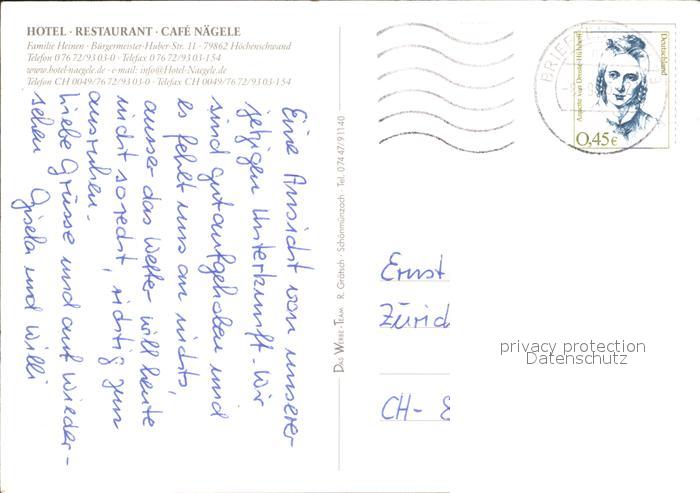 HOTEL · RESTAURANT · CAFÉ NÄGELE
Familie Heinen · Bürgermeister-Huber-Str. 11 · 79862 Höchenschwand
Telefon 0 76 72/93 03-0 · Telefax 0 76 72/93 03-154
www.hotel-naegele.de · e-mail: info@Hotel-Naegele.de
Telefon CH 0049/76 72/93 03-0 · Telefax CH 0049/76 72/93 03-154
Eine Ansicht von unserer
jetzigen Unterkunft. Wir
sind gut aufgehoben und
es fehlt uns an nichts,
ausser das Wetter will heute
nicht so recht, richtig zum
ausruhen.
Liebe Grüsse und auf Wieder-
sehen Gisela und Willi
DAS WERBE-TEAM · R. Grätsch · Schönmünzach · Tel. 0 74 47/9 11 40
BRIEF
Annette von Droste-Hülshoff
Deutschland
0,45€
Ernst
Zürich
CH-
privacy protection
Datenschutz